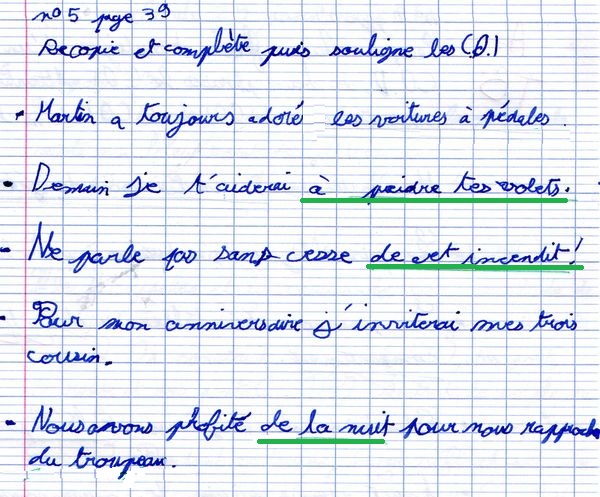 n°5 page 39
Recopie et complète puis souligne les C.O.I
• Martin a toujours adoré les voitures à pédales.
• Demain je t'aiderai à peidre tes volets.
- Ne parle pas sans cesse de cet incendit!
- Pour mon anniversaire j'inviterai mes trois
cousin.
- Nous avons profité de la nuit pour nous rapproche
du troupeau.